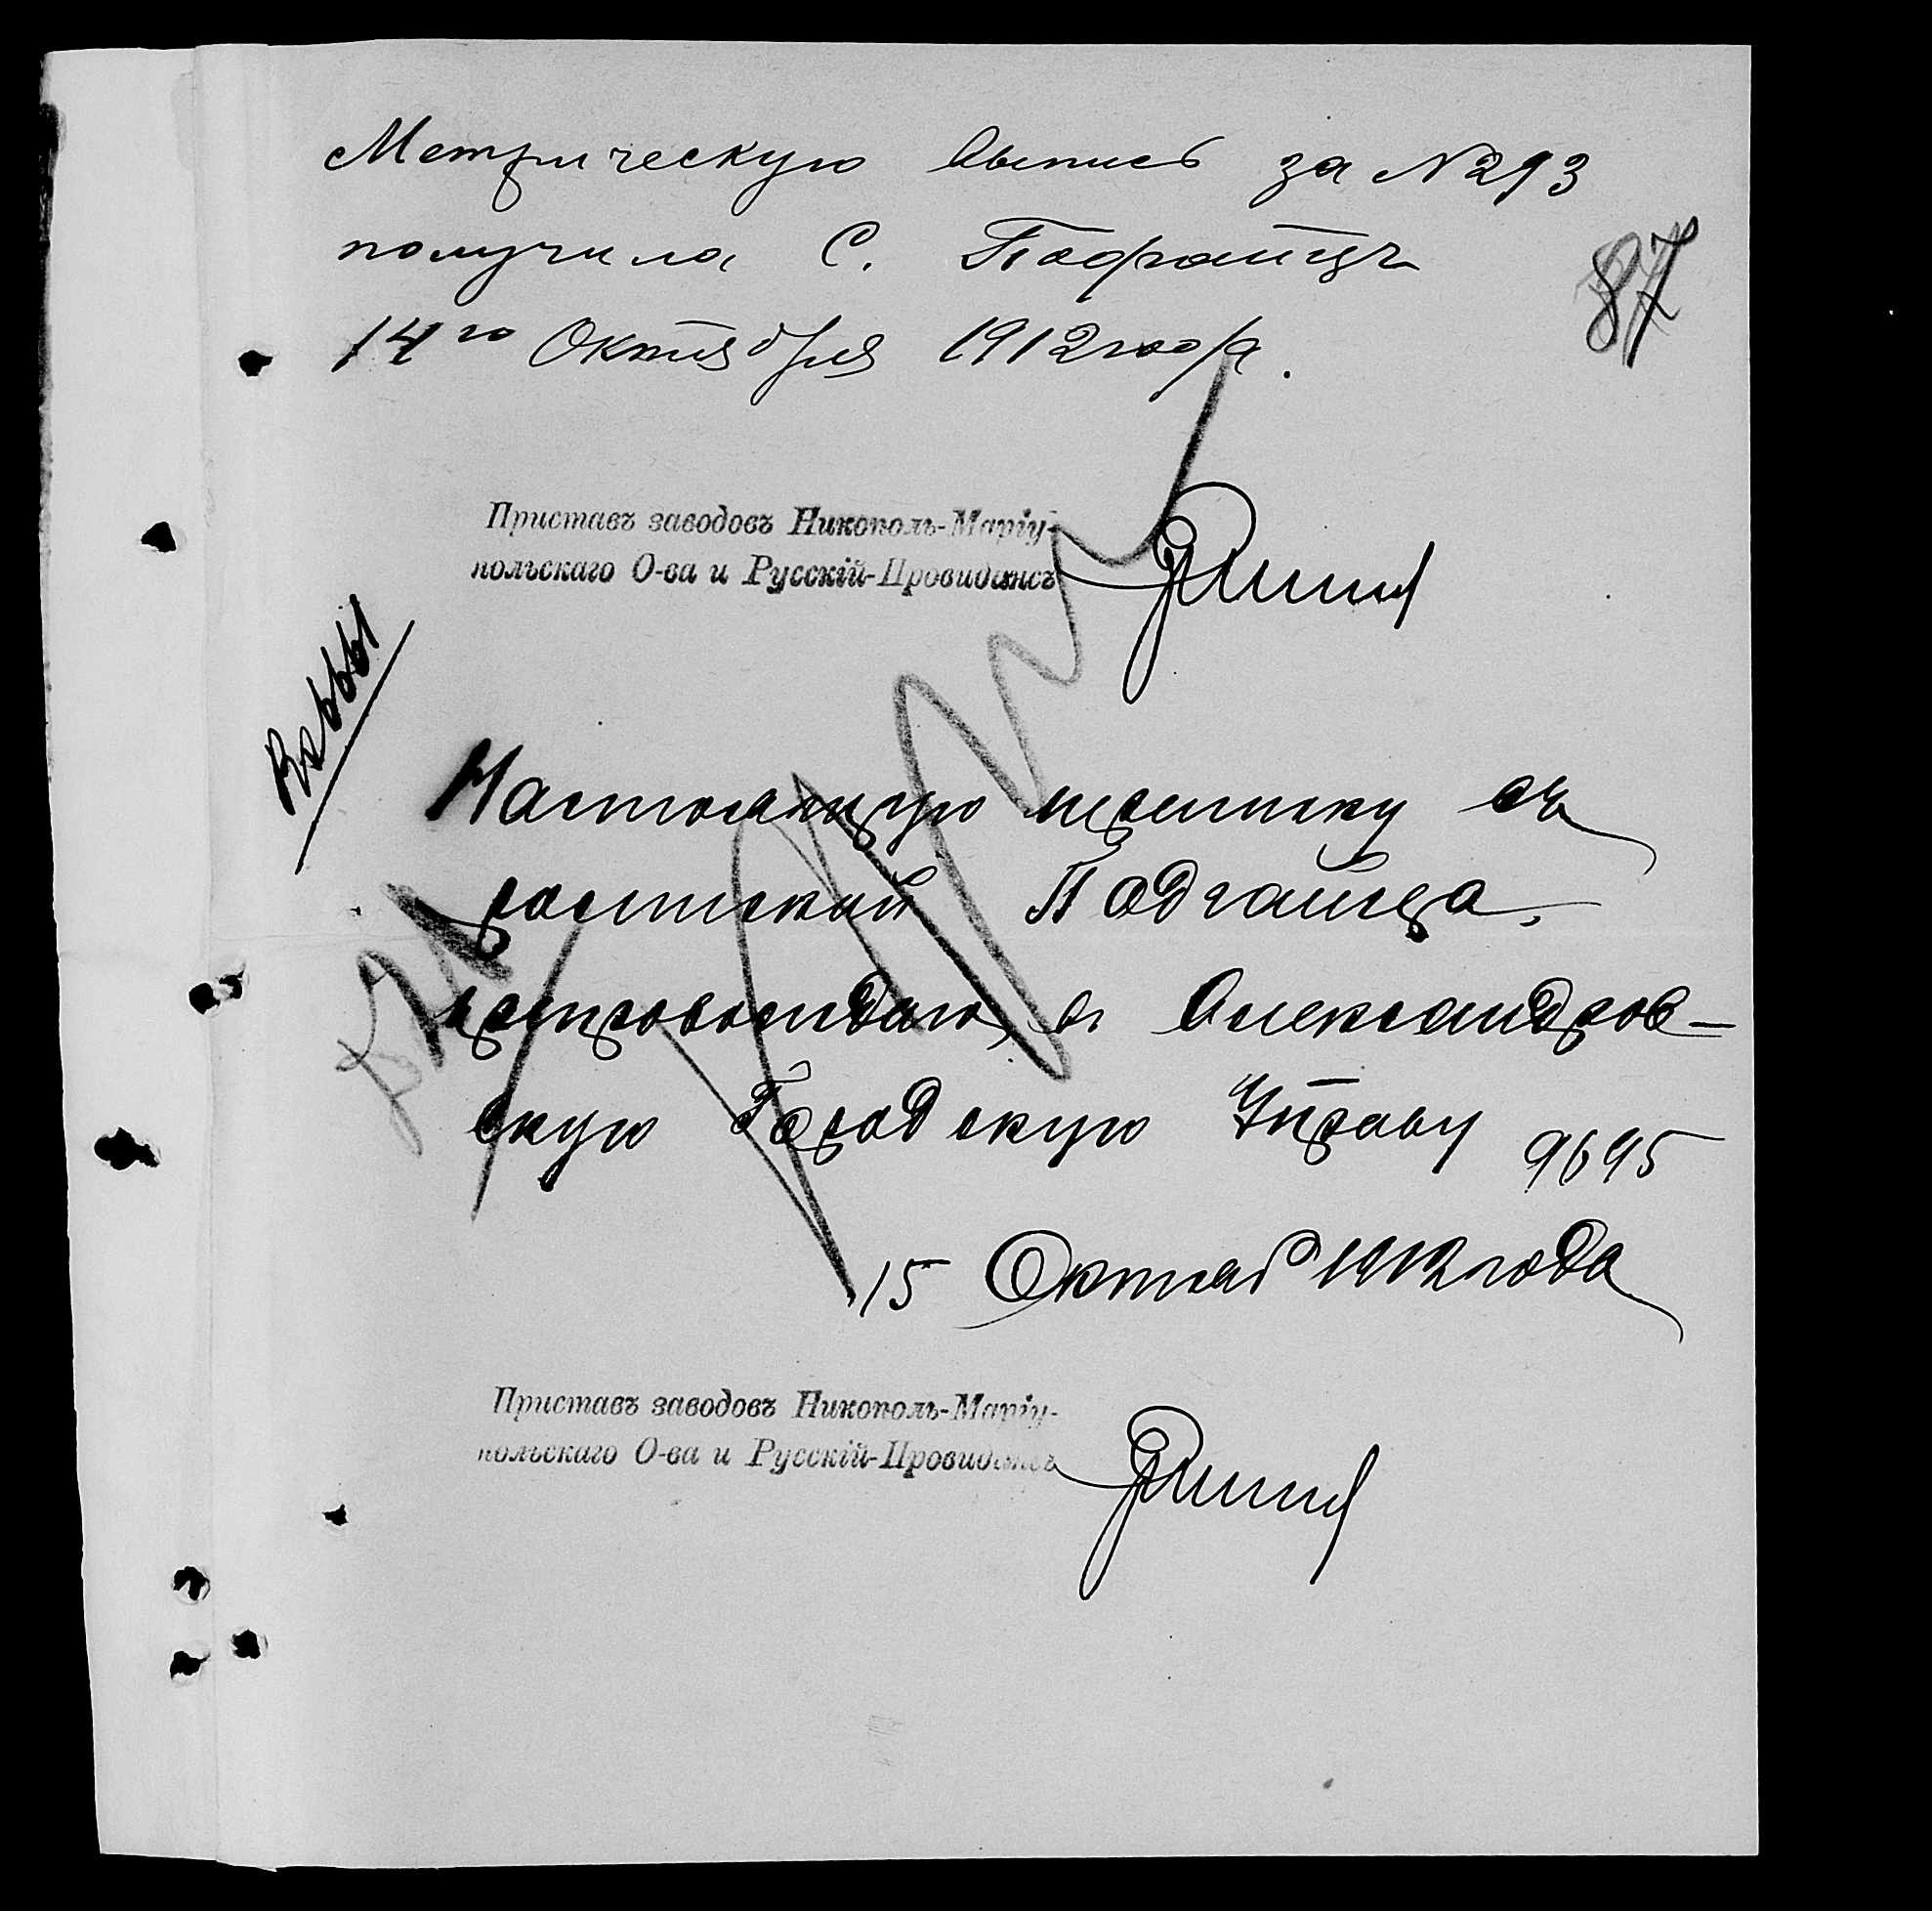 Метрическую выпись за N 293
87
получила С. Подгаицъ
14го Октября 1912 года.
Приставъ заводовъ Никополь-Маріу-
польскаго О-ва и Русскій-Провидансъ
Настоящую переписку съ
распиской Подгайца,
препровождаю въ Александров-
скую Городскую Управу
9695
15 Октяб 1912 года
Приставъ заводовъ Никополь-Маріу-
польскаго О-ва и Русскій-Провидансъ